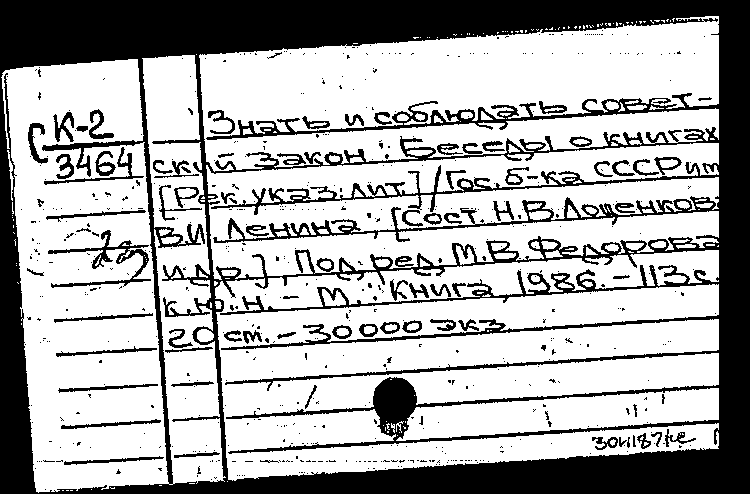 К-2
3464
Знать и соблюдать совет-
ский закон : Беседы о книгах
[Рек. указ. лит.] / Гос. б-ка СССР им
В.И. Ленина ; [Сост. Н.В. Лощенкова
и др.] ; Под. ред. М.В. Федорова
к.ю.н. - М. : Книга, 1986. - 113 с.
20 см. - 30000 экз